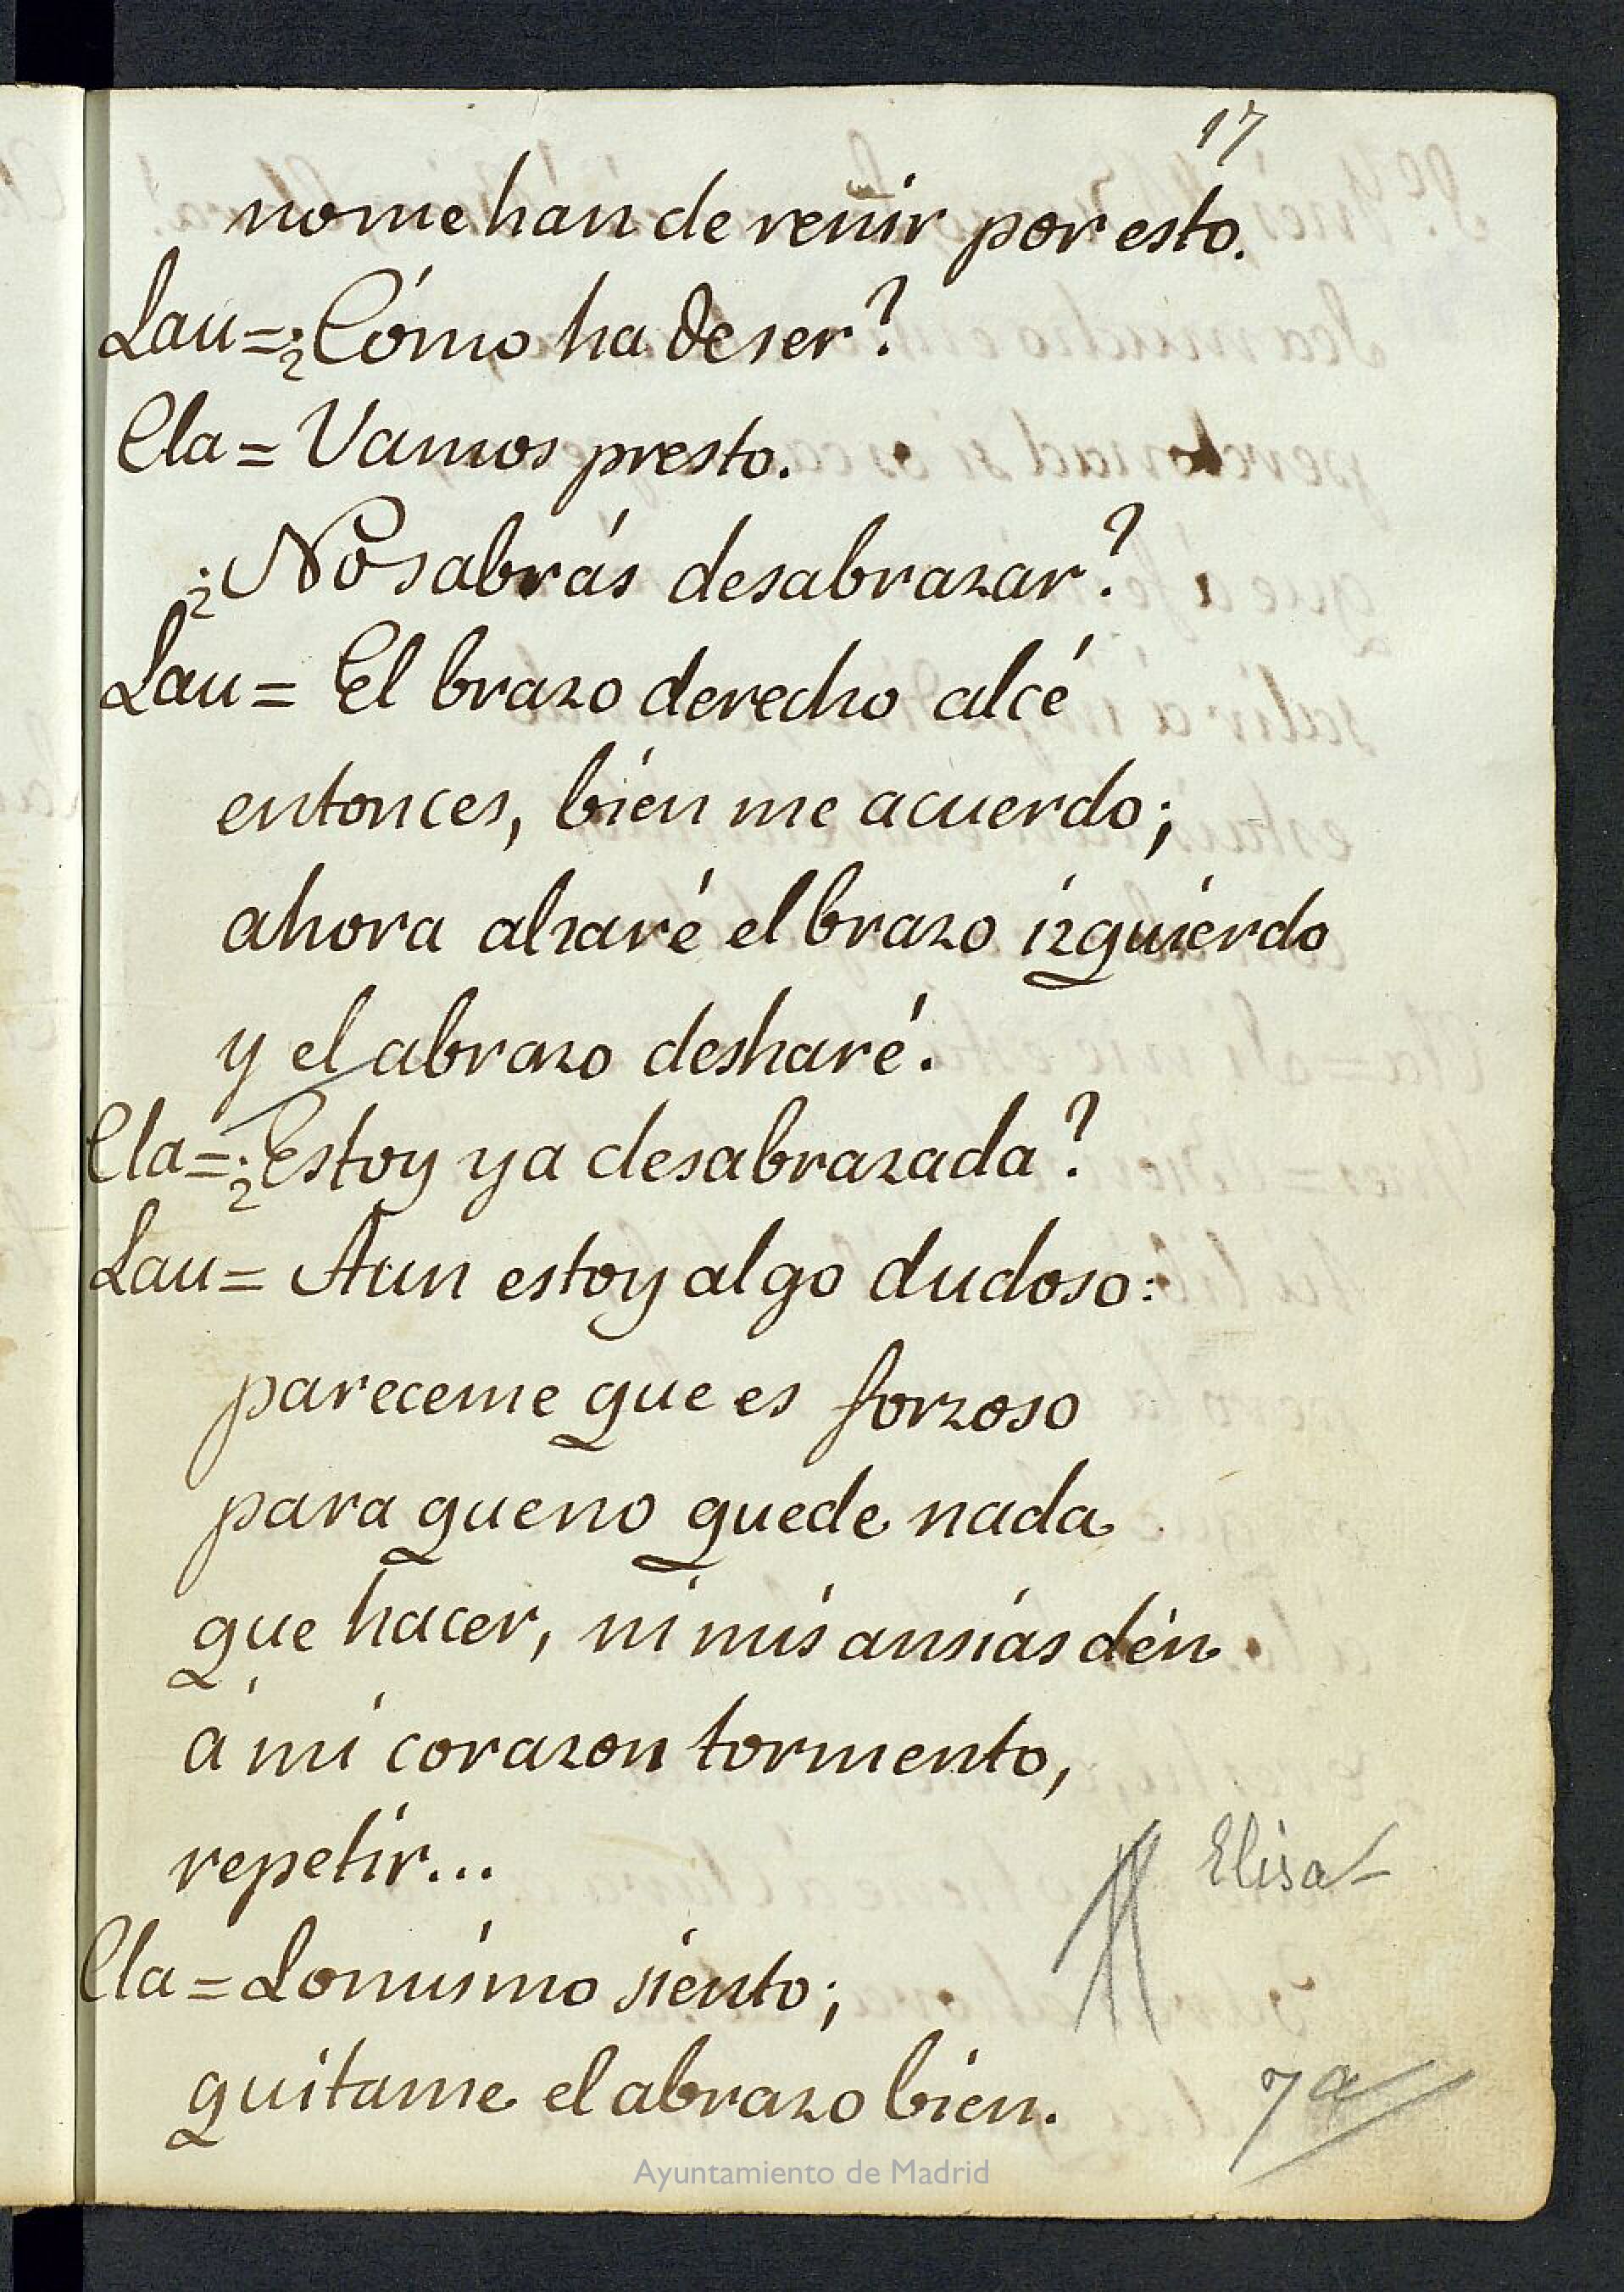 17
no me han de reñir por esto.
Lau=¿Cómo ha de ser?
Cla= Vamos presto.
¿No sabrás desabrazar?
Lau= El brazo derecho alcé
entonces, bien me acuerdo;
ahora alzaré el brazo izquierdo
y el abrazo desharé.
Cla=¿Estoy ya desabrazada?
Lau= Aun estoy algo dudoso:
pareceme que es forzoso
para que no quede nada
que hacer, ni mis ansias dén
á mi corazon tormento,
repetir...
Elisa
Cla= Lo mismo siento;
quitame el abrazo bien.
7ª
Ayuntamiento de Madrid